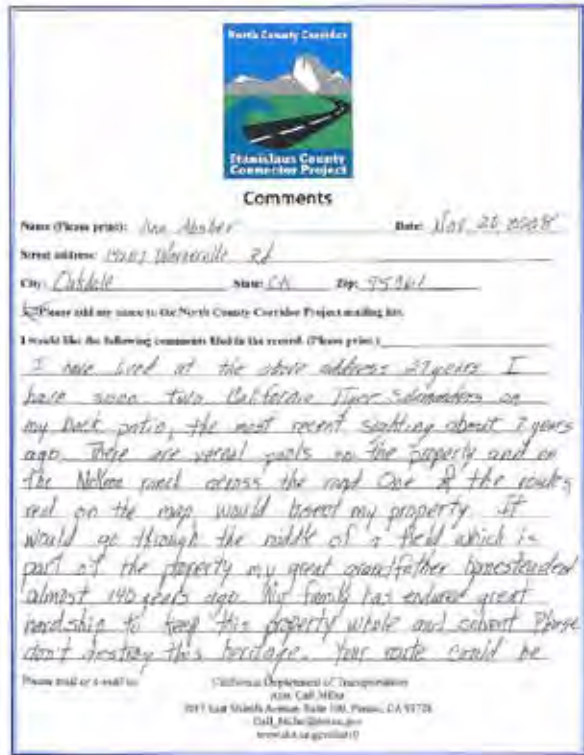 North County Corridor
Stanislaus County
Connector Project
Comments
Name (Please print): Date: Nov. 20, 2008
Street address: Warnerville Rd
City: Oakdale State: CA Zip: 95361
Please add my name to the North County Corridor Project mailing list.
I would like the following comments filed in the record. (Please print.)
I have lived at the above address 27 years I
have seen two California Tiger Salamanders on
my back patio, the most recent sighting about 7 years
ago. There are vernal pools on the property and on
the ranch across the road One of the routes
red on the map would bisect my property. It
would go through the middle of a field which is
part of the property my great grandfather homesteaded
almost 140 years ago. My family has endured great
hardship to keep this property whole and solvent Please
don't destroy this heritage. Your route could be
Please mail or e-mail to: California Department of Transportation
Attn: Gail Miller
Avenue, Suite 100, Fresno, CA 93726